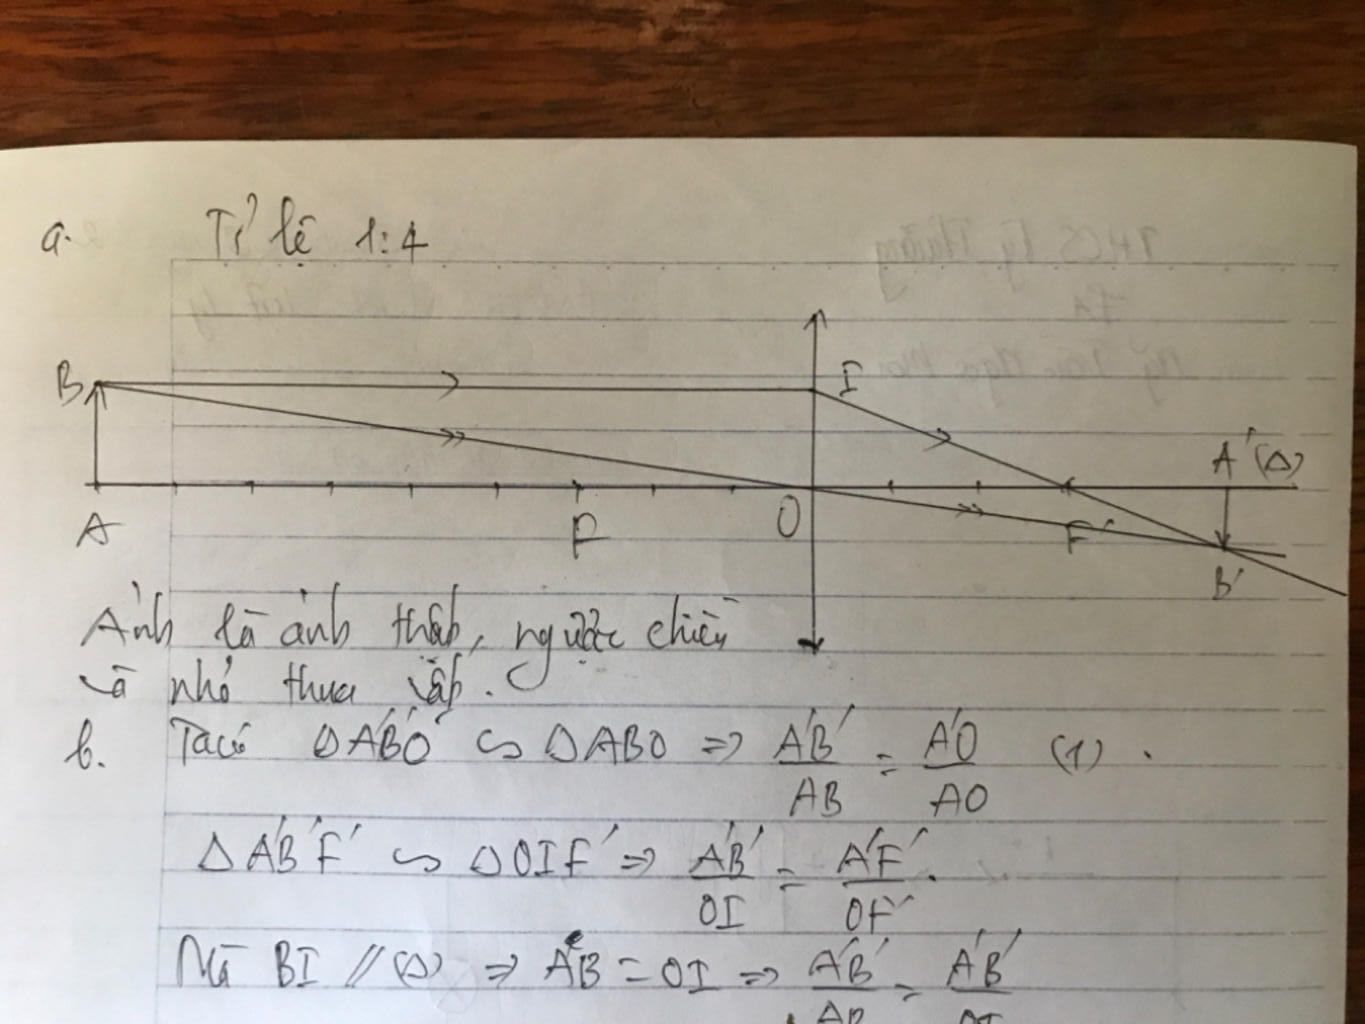 a. Tỉ lệ 1:4
B I
A' (Δ)
A F O F' B'
Ảnh là ảnh thật, ngược chiều
và nhỏ thua vật.
b. Ta có ΔA'B'O ∽ ΔABO => A'B'/AB = A'O/AO (1).
ΔA'B'F' ∽ ΔOIF' => A'B'/OI = A'F'/OF'.
Mà BI // (Δ) => AB = OI => A'B'/AB = A'B'/OI